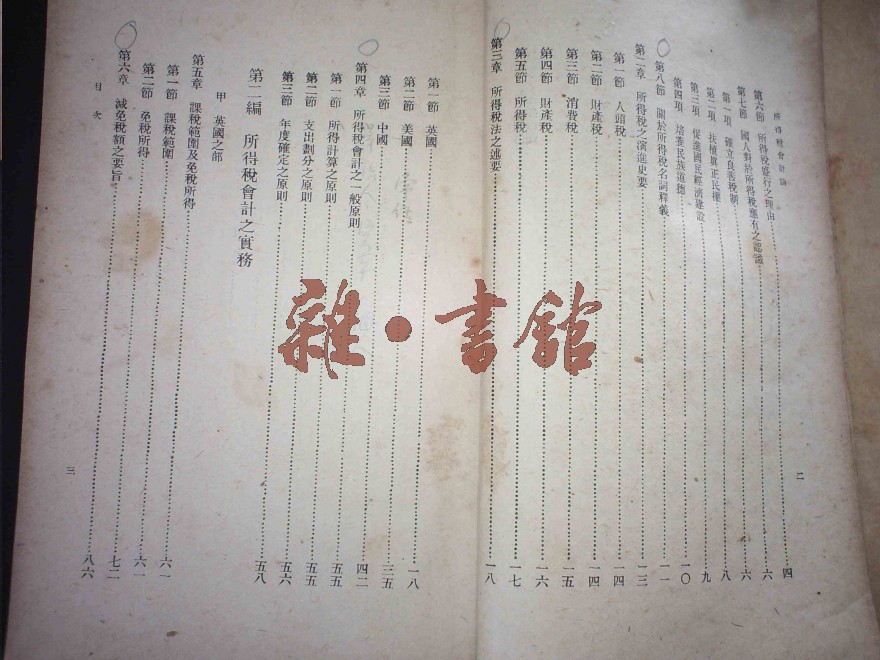 所得稅會計論
第六節 所得稅盛行之理由……四
第七節 國人對於所得稅應有之認識……六
第一項 確立良善稅制……六
第二項 扶植眞正民權……八
第三項 促進國民經濟建設……九
第四項 培養民族道德……一〇
第八節 關於所得稅名詞釋義……一一
第二章 所得稅之演進史要……一三
第一節 人頭稅……一四
第二節 財產稅……一四
第三節 消費稅……一五
第四節 財產稅……一六
第五節 所得稅……一七
第三章 所得稅法之述要……一八
二
第一節 英國……一八
第二節 美國……三五
第三節 中國……四二
第四章 所得稅會計之一般原則……五五
第一節 所得計算之原則……五五
第二節 支出劃分之原則……五六
第三節 年度確定之原則……五八
第二編 所得稅會計之實務
甲 英國之部
第五章 課稅範圍及免稅所得……六一
第一節 課稅範圍……六一
第二節 免稅所得……七二
第六章 減免稅額之要旨……八六
目次
三
雜·書館